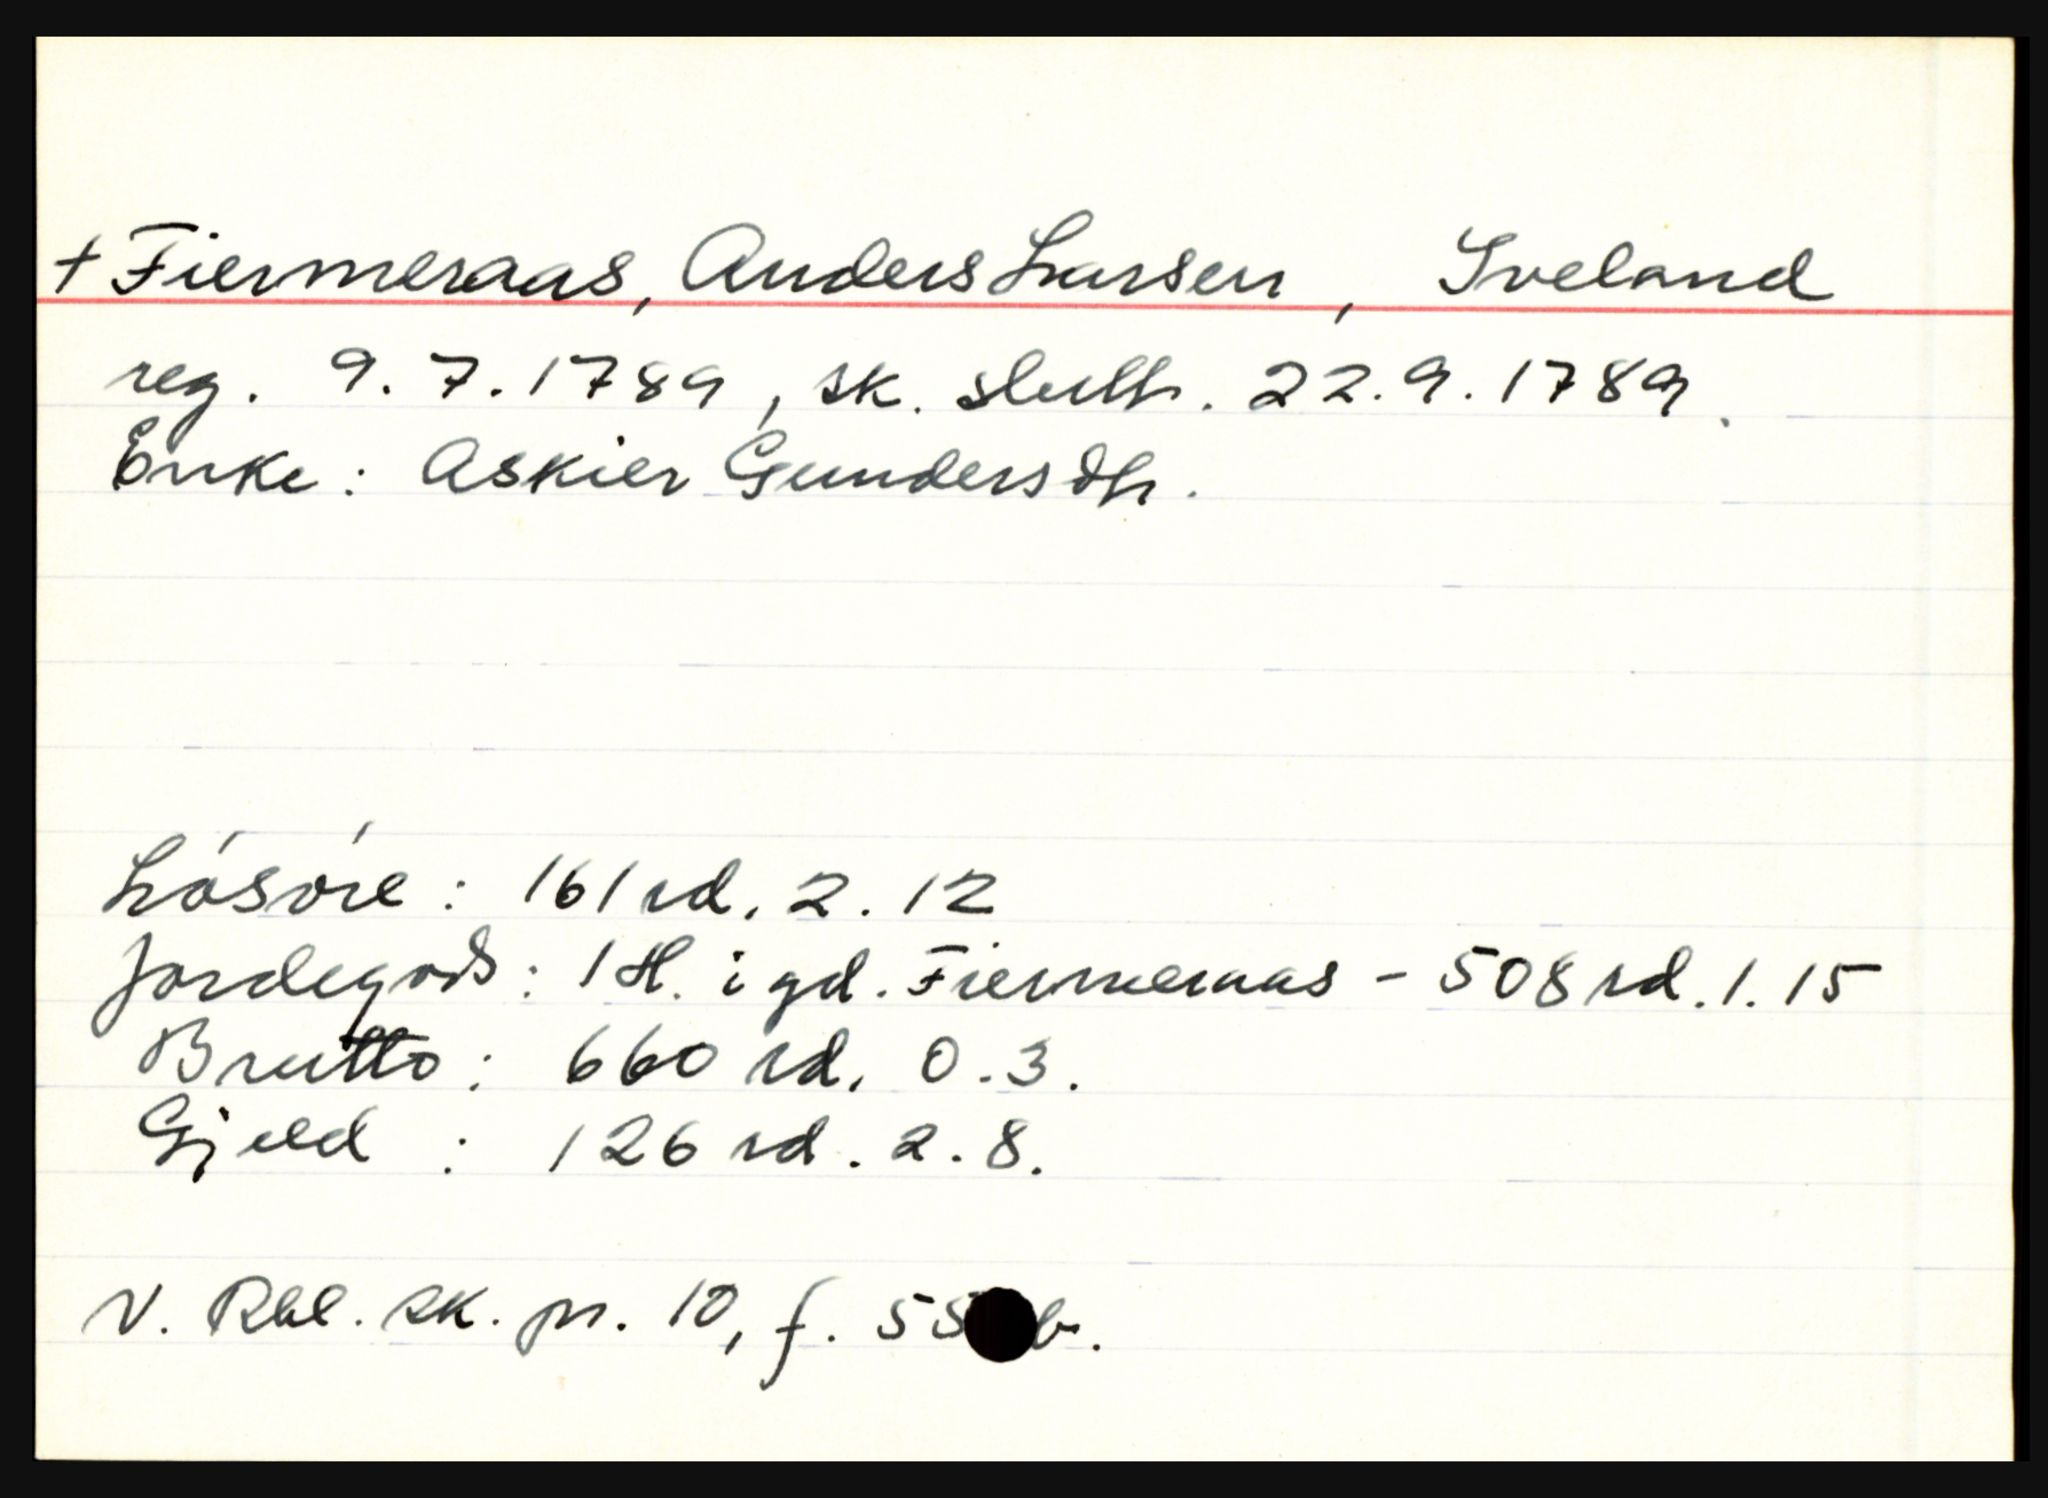 + Fiermeraas, Anders Larsen, Iveland
reg. 9.7.1789, sk. slutt. 22.9.1789.
Enke: Askier Gundersdtr.
Løsøre: 161 rd. 2.12
Jordegods: 1 H. i gd. Fiermeraas - 508 rd. 1.15
Brutto: 660 rd. 0.3.
Gjeld : 126 rd. 2.8.
V. Rbl. sk. pr. 10, f. b.